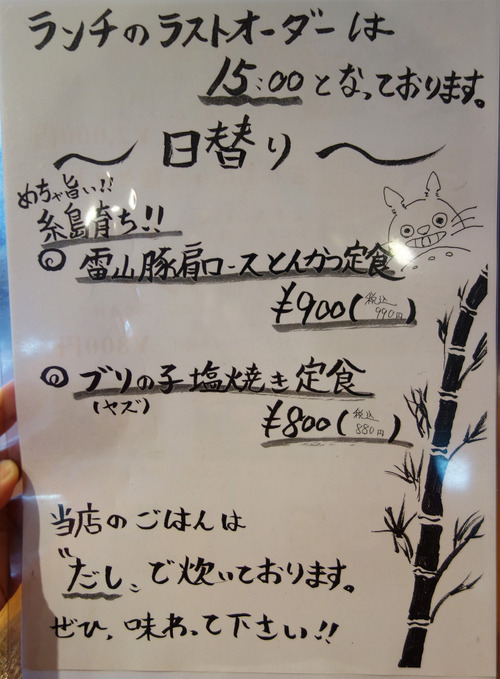 ランチのラストオーダーは
15:00となっております。
〜日替り〜
めちゃ旨い!!
糸島育ち!!
◎雷山豚肩ロースとんかつ定食
¥900(税込990円)
◎ブリの子塩焼き定食
(ヤズ)
¥800(税込880円)
当店のごはんは
〝だし〟で炊いております。
ぜひ、味わって下さい!!